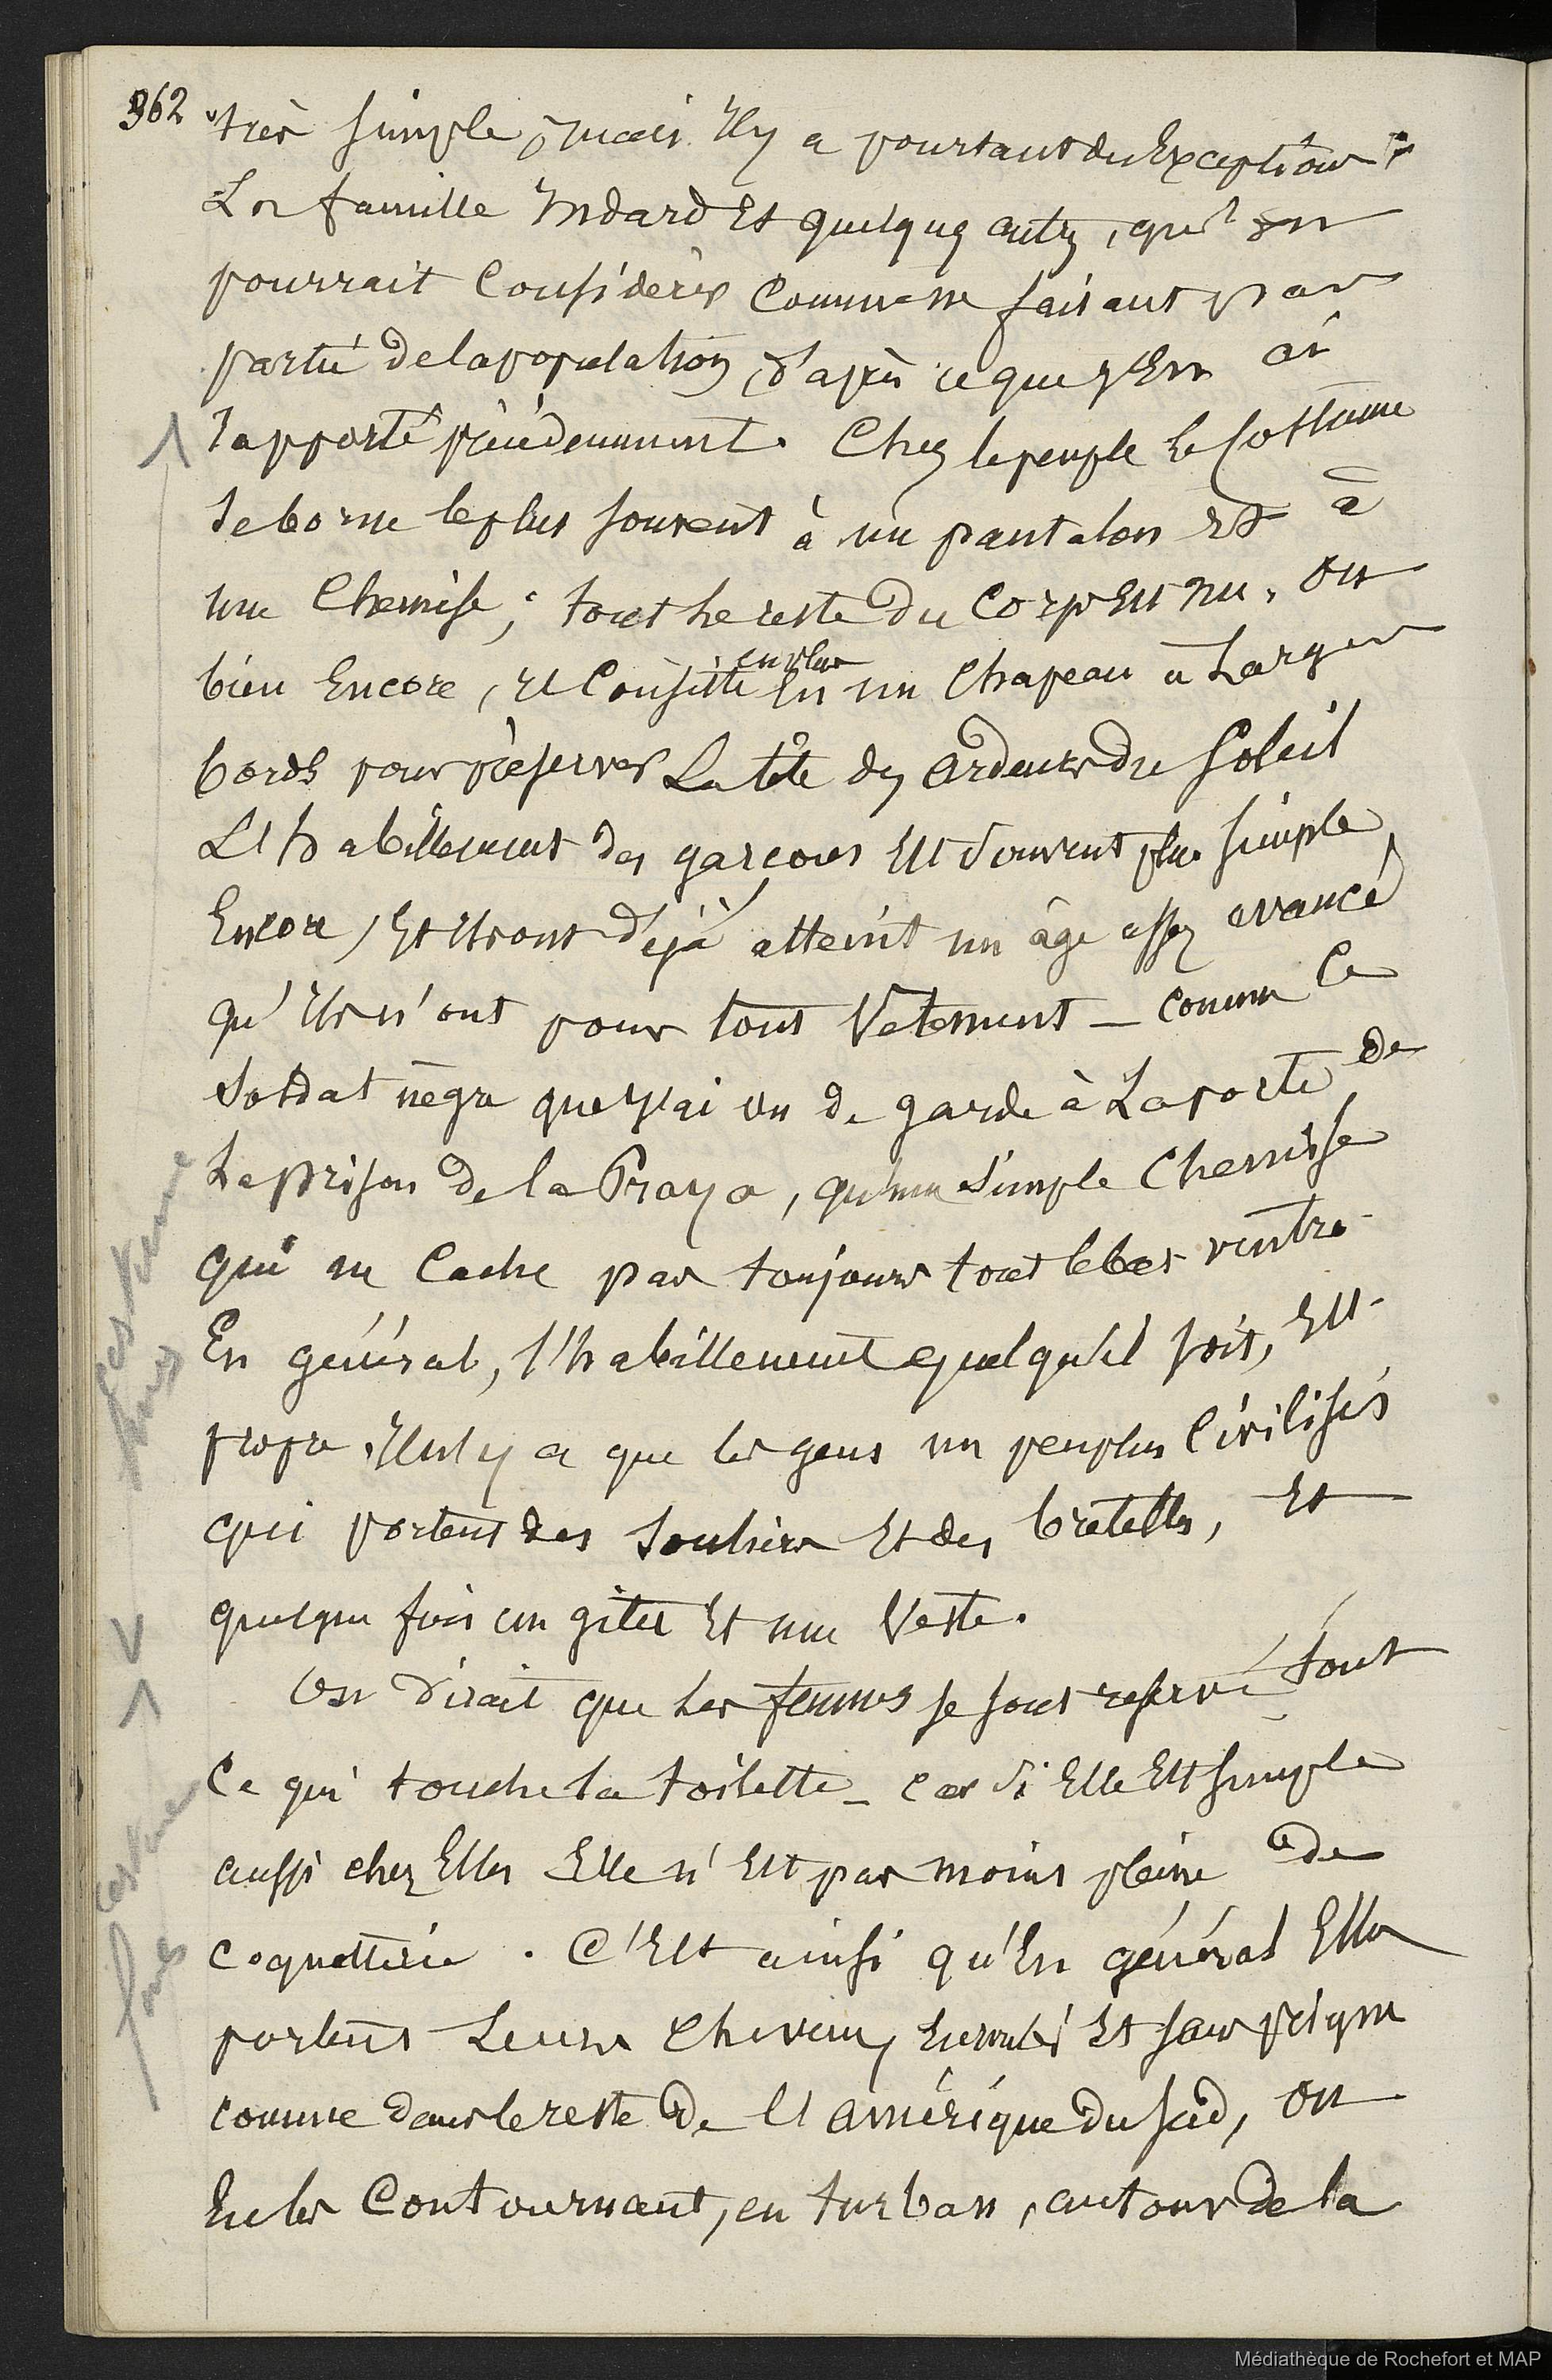 362 très simple, mais Il y a pourtant des Exceptions.
La famille Indard Et quelques autres, que l'on
pourrait Considérer Comme ne faisant pas
partie de la population, d'après ce que j'En ai
rapporté précédemment. Chez le peuple le Costume
se borne le plus souvent à un pantalon Et à
une Chemise; tout le reste du Corps Est nu, ou
bien Encore, il Consiste en plus En un Chapeau à Larges
bords pour préserver La tête des ardeurs du Soleil
L'habillement des garçons Est souvent plus simple
Encore, Et Ils ont déjà atteint un âge assez avancé
qu'Ils n'ont pour tout Vetement _ comme Ce
Soldat nègre que j'ai vu de garde à La porte de
La prison de la Praya, qu'une Simple Chemise
qui ne Cache pas toujours tout le bas ventre
En général, l'habillement quel qu'il soit, Est
propre. Il n'y a que les gens un peu plus Civilisés
qui portent des Souliers Et des bretelles, Et
quelque fois un gilet Et une Veste.
On dirait que Les femmes se sont reservé tout
Ce qui touche la toilette _ Car si Elle Est simple
aussi chez Elles Elle n'Est pas moins pleine de
coquetterie. C'Est ainsi qu'En général Elles
portent Leurs Cheveux Enroulés Et sans peigne
comme dans le reste de l'amérique du sud, ou
En les Contournant, en turban, autour de la
costume
hommes
costume
femmes
Médiathèque de Rochefort et MAP